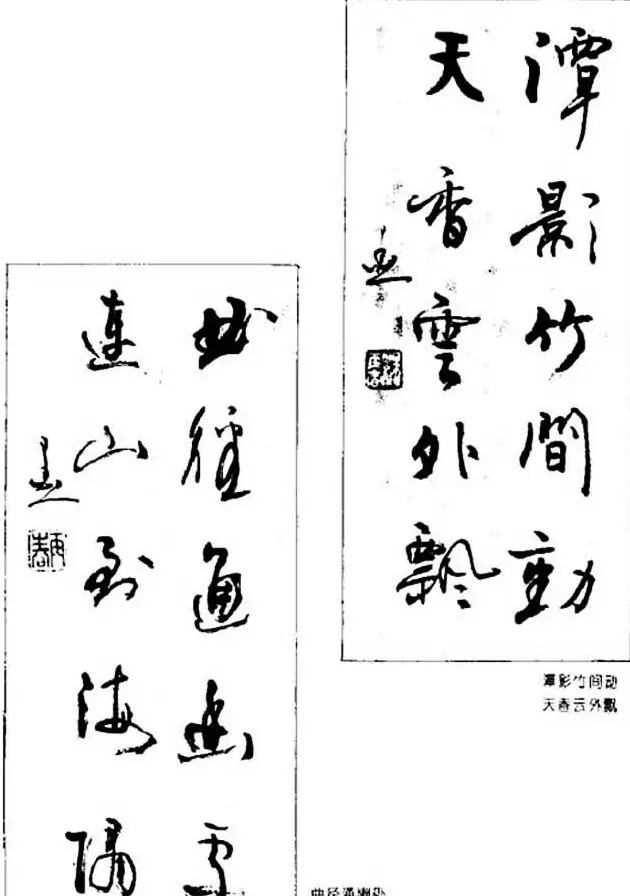 潭影竹間動
天香雲外飄
曲徑通幽處
連山到海隅
潭影竹间动
天香云外飘
曲径通幽处